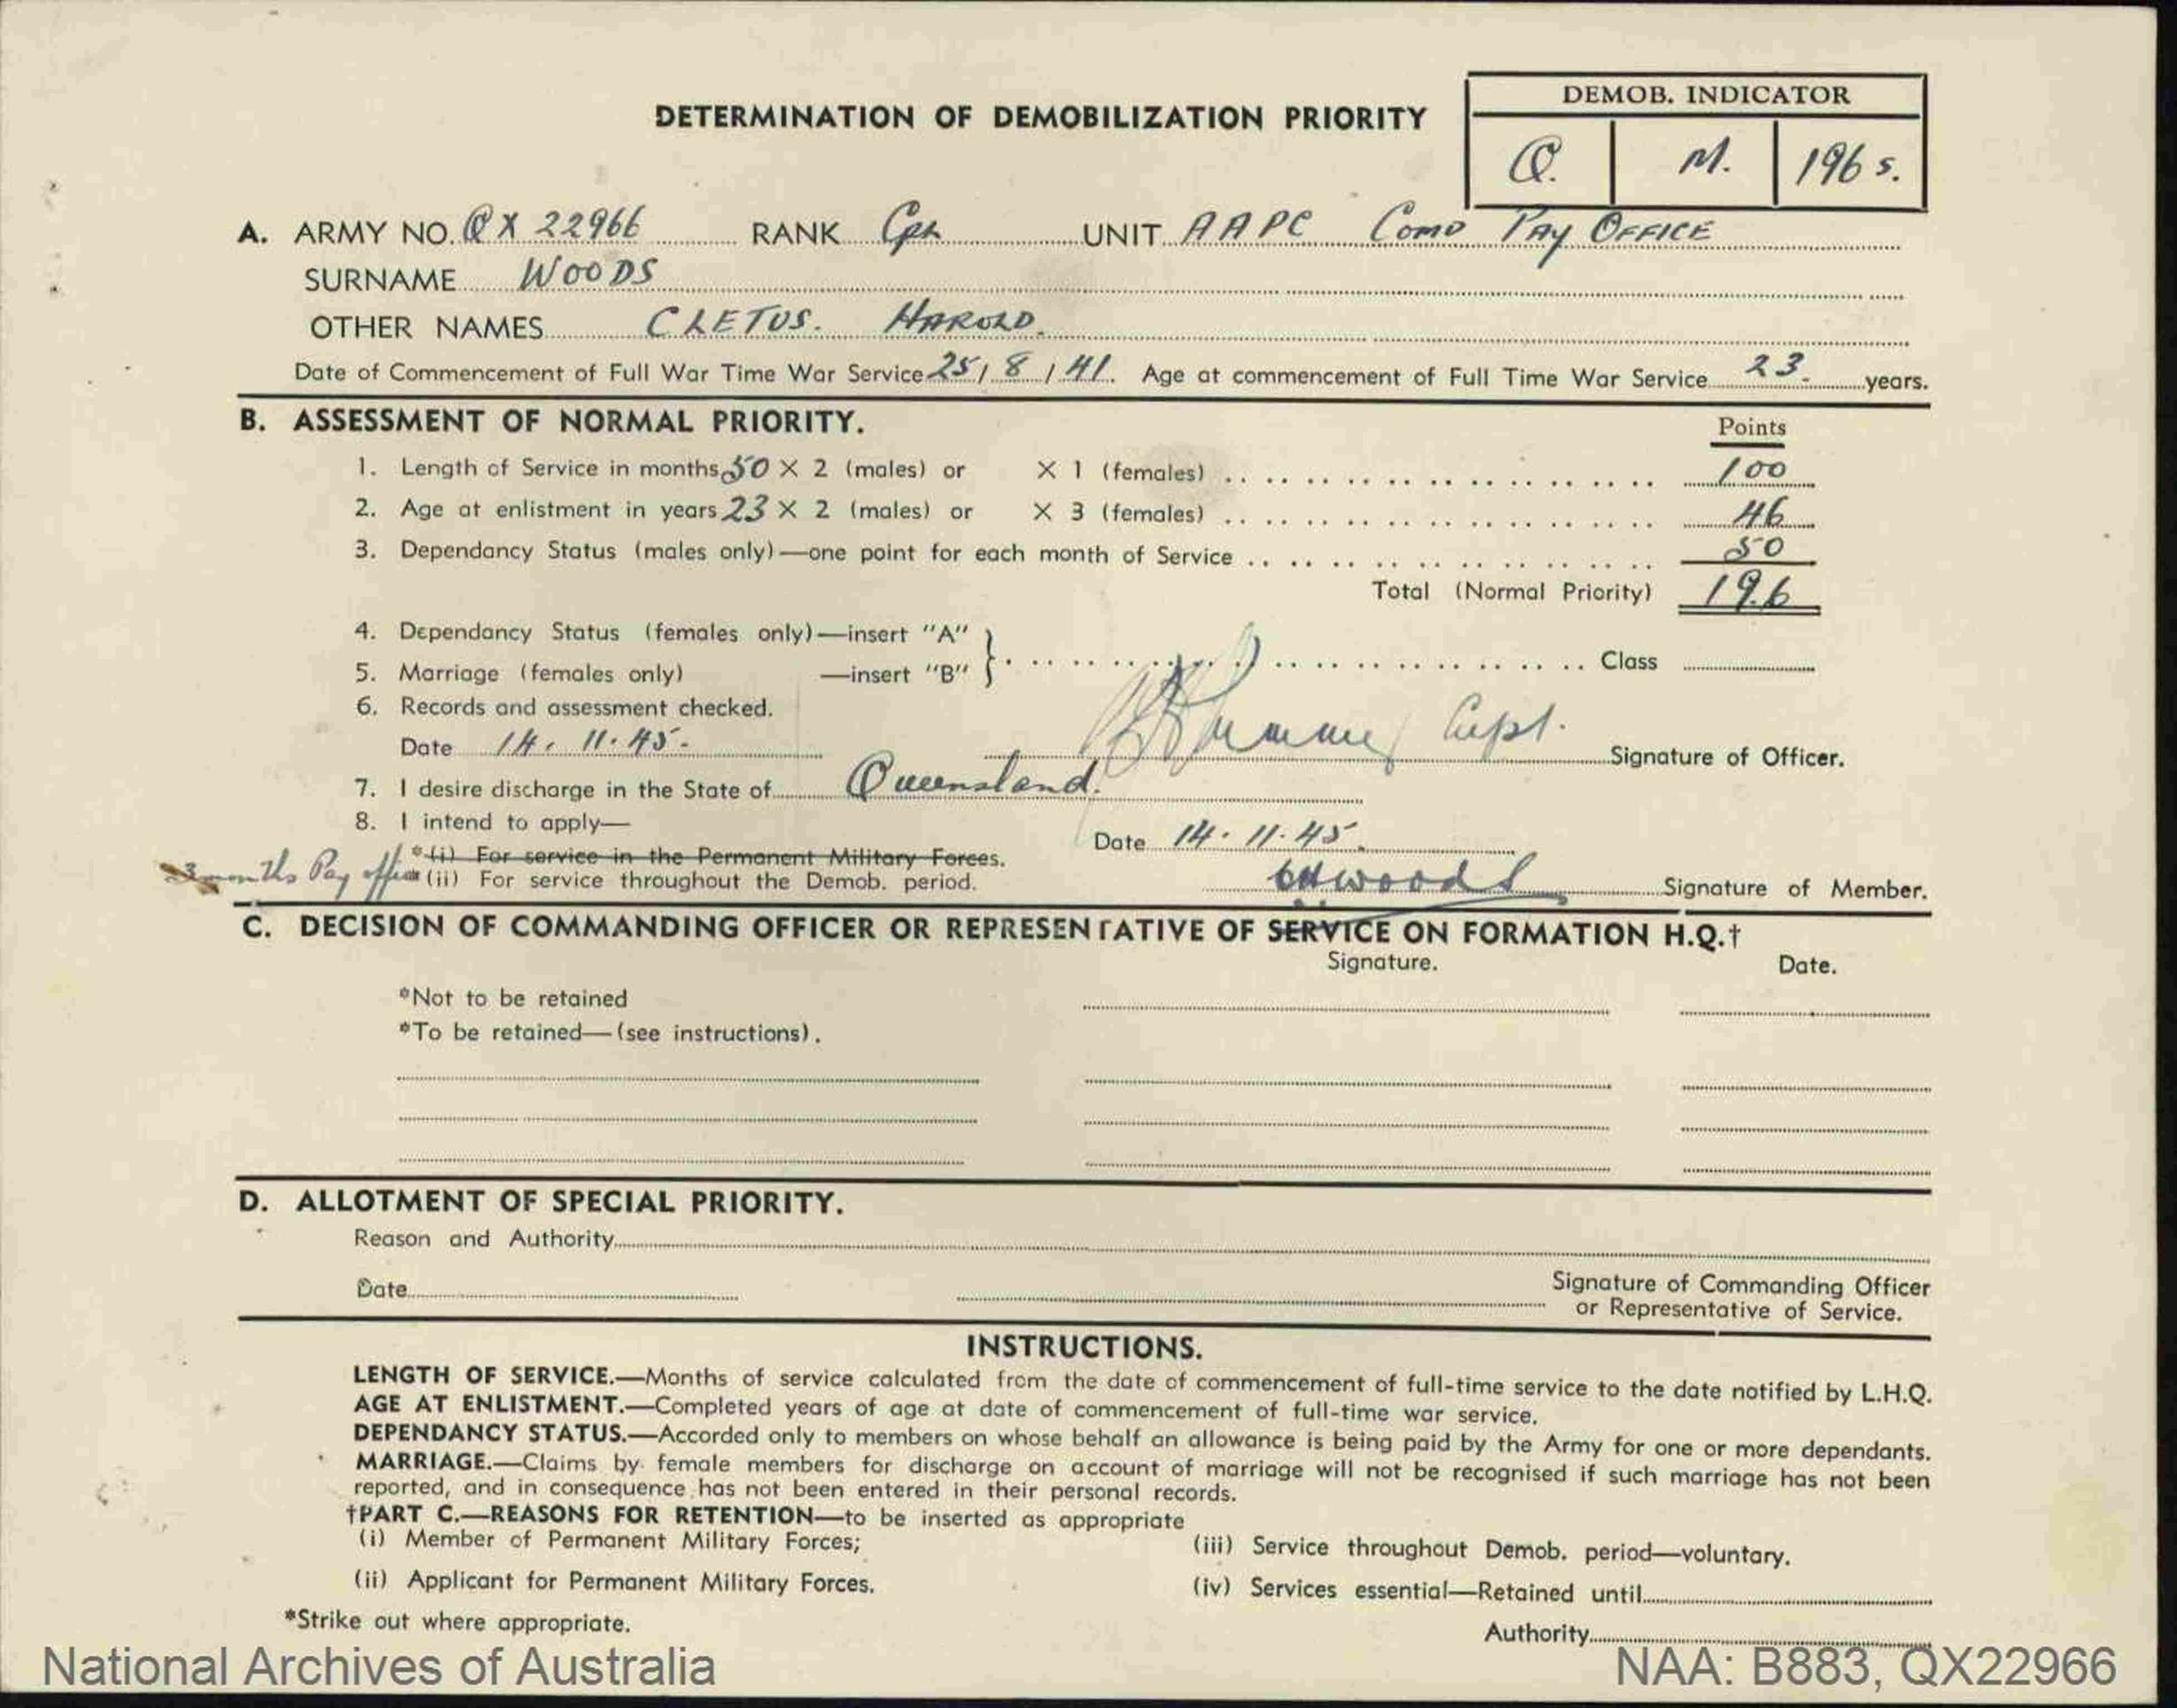 DETERMINATION OF DEMOBILIZATION PRIORITY
DEMOB. INDICATOR
Q. M. 196 s.
A. ARMY NO. QX 22966 RANK Cpl UNIT AAPC COMO PAY OFFICE
SURNAME WOODS
OTHER NAMES CLETUS. HAROLD.
Date of Commencement of Full War Time War Service 25/8/41. Age at commencement of Full Time War Service 23. years.
B. ASSESSMENT OF NORMAL PRIORITY.
Points
1. Length of Service in months 50 X 2 (males) or X 1 (females) 100
2. Age at enlistment in years 23 X 2 (males) or X 3 (females) 46
3. Dependancy Status (males only)—one point for each month of Service 50
Total (Normal Priority) 196
4. Dependancy Status (females only)—insert "A"
5. Marriage (females only) —insert "B" Class
6. Records and assessment checked.
Date 14. 11. 45. Capt. Signature of Officer.
7. I desire discharge in the State of Queensland.
8. I intend to apply—
Date 14. 11. 45.
*(i) For service in the Permanent Military Forces.
3 months Pay office (ii) For service throughout the Demob. period.
CHWoods Signature of Member.
C. DECISION OF COMMANDING OFFICER OR REPRESENTATIVE OF SERVICE ON FORMATION H.Q.†
Signature. Date.
*Not to be retained
*To be retained—(see instructions).
D. ALLOTMENT OF SPECIAL PRIORITY.
Reason and Authority
Date
Signature of Commanding Officer
or Representative of Service.
INSTRUCTIONS.
LENGTH OF SERVICE.—Months of service calculated from the date of commencement of full-time service to the date notified by L.H.Q.
AGE AT ENLISTMENT.—Completed years of age at date of commencement of full-time war service.
DEPENDANCY STATUS.—Accorded only to members on whose behalf an allowance is being paid by the Army for one or more dependants.
MARRIAGE.—Claims by female members for discharge on account of marriage will not be recognised if such marriage has not been
reported, and in consequence has not been entered in their personal records.
†PART C.—REASONS FOR RETENTION—to be inserted as appropriate
(i) Member of Permanent Military Forces;
(iii) Service throughout Demob. period—voluntary.
(ii) Applicant for Permanent Military Forces.
(iv) Services essential—Retained until
*Strike out where appropriate.
Authority
National Archives of Australia
NAA: B883, QX22966